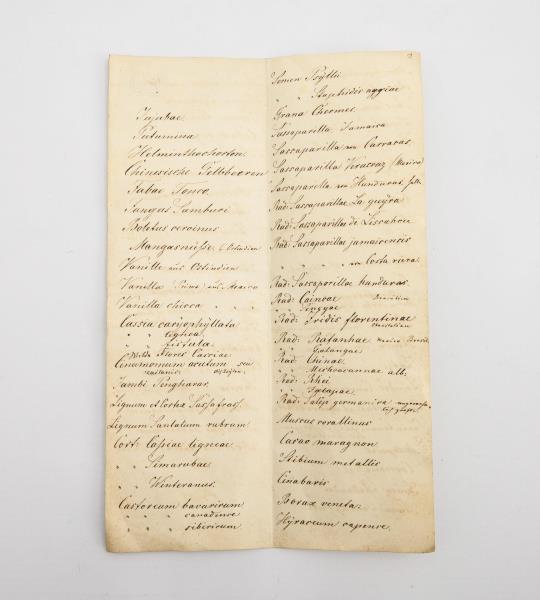 Jujubae.
Putumina
Helmenthochorton.
Chinesische Gelbbeeren
Fabae Tonco.
Fungus Sambuci
Boletus cervinus
Mangasnüsse Ostindien
Vanille aus Ostindien
Vanilla
Vanilla chicca " "
Cassia caryophyllata
" " lignea
" " fistula
Flores Cassiae
Cinamomum acutum seu
Zeylanic.
Lignum et Cortex Sassafrass.
Lignum Santalum rubrum.
Cort: Cassiae ligneae.
" " Simarubae.
" " Winteranus.
Castoreum bavaricum
" " canadense
" " sibiricum
Semen Psyllii
" " Staphidis agriae
Grana Chermes.
Sassaparilla, Jamaica
Sassaparilla von Carracas.
Sassaparilla Veracruz (Mexico)
Sassaparella von Hunduras
Rad: Sassaparillae La guÿra
Rad: Sassaparillae de Lissabon
Rad: Sassaparillae jamaicensis
" " " von Costa rica.
Rad: Sassaparillae hunduras.
Rad: Caincae Brasilien
Rad: Iridis florentinae
Rad: Ratanhae
" " Galangae
Rad: Chinae
" " Mechoacannae alb:
Rad: Rhei
" " Jalapae
Rad: Salep germanica
Muscus corallinus
Cacao maragnon
Stibium metallic
Cinabaris
Borax veneta.
Hÿraceum capense.